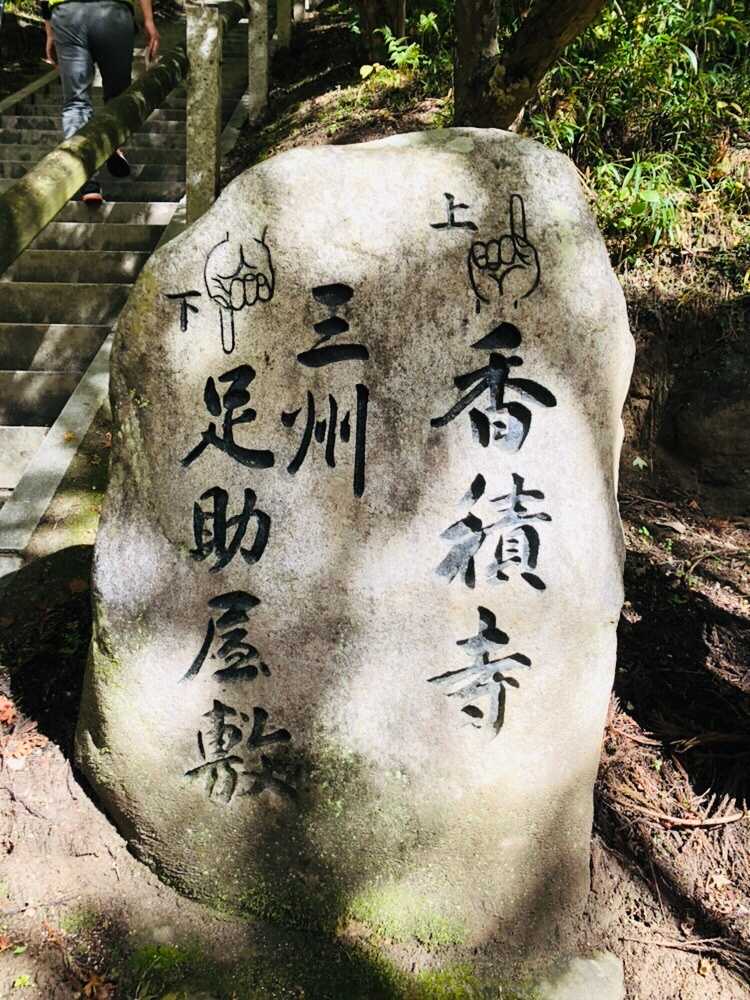 上
香積寺
下
三州
足助屋敷